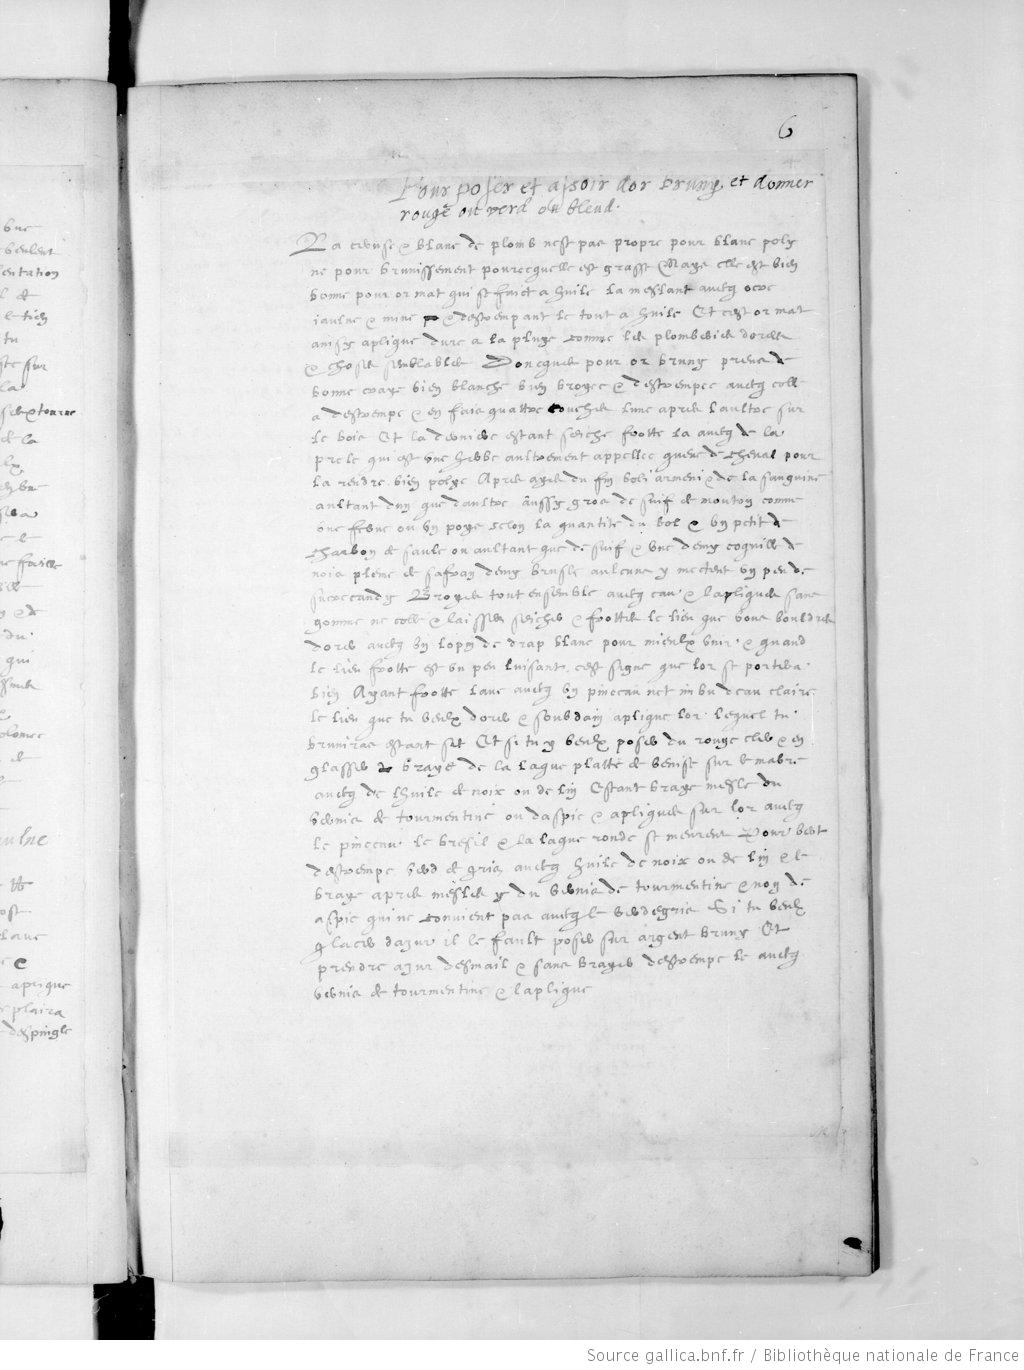 6
Pour poser et asoir dor bruny et donner
rouge ou verd ou bleud.
La ceruse & blanc de plomb nest pas propre pour blanc poly
ne pour brunissement pourcequelle est grasse Mays elle est bien
bonne pour or mat qui se faict a huile la meslant avecq ocre
jaulne & mine & destrempant le tout a huile Et cest or mat
ainsy aplique dure a la pluye comme les plomberies dorees
& choses semblables Doncques pour or bruny prens de
bonne craye bien blanche bien broyee & destrempee avecq colle
a destrempe & en fais quattre couches lune apres laultre sur
le bois Et la derniere estant seiche frotte la avecq de la
prele qui est une herbe aultrement appellee queue de cheval pour
la rendre bien polye Apres ayes du fin boliarmeni & de la sanguine
aultant dun que daultre aussy gros de suif de mouton comme
une febve ou un poys selon la quantite du bol & un petit de
charbon de saule ou aultant que de suif & une demy coquille de
nois pleine de safran demy brusle aulcuns y mectent un peu de
succecandy Broyes tout ensemble avecq eau & lapliques sans
gomme ne colle & laisses seicher & frottes le lieu que vous vouldres
dorer avecq un lopin de drap blanc pour mieulx unir & quand
le lieu frotte est un peu luisant cest signe que lor se portera
bien Ayant frotte lave avecq un pinceau net imbu deau claire
le lieu que tu veulx dorer & soubdain aplique lor lequel tu
bruniras estant sec Et si tu y veulx poser du rouge cler & en
glasser braye de la laque platte de Venise sur le mabre
avecq de lhuile de noix ou de lin Estant braye mesle du
vernis de tourmentine ou daspic & apliques sur lor avecq
le pinceau le bresil & la laque ronde se meurent Pour vert
destrempe verd de gris avecq huile de noix ou de lin & le
braye apres mesles y du vernis de tourmentine & non de
aspic qui ne convient pas avecq le verdegris Si tu veulx
glacer dazur il le fault poser sur argent bruny Et
prendre azur desmail & sans brayer destrempe le avecq
vernis de tourmentine & laplique
Source gallica.bnf.fr / Bibliothèque nationale de France